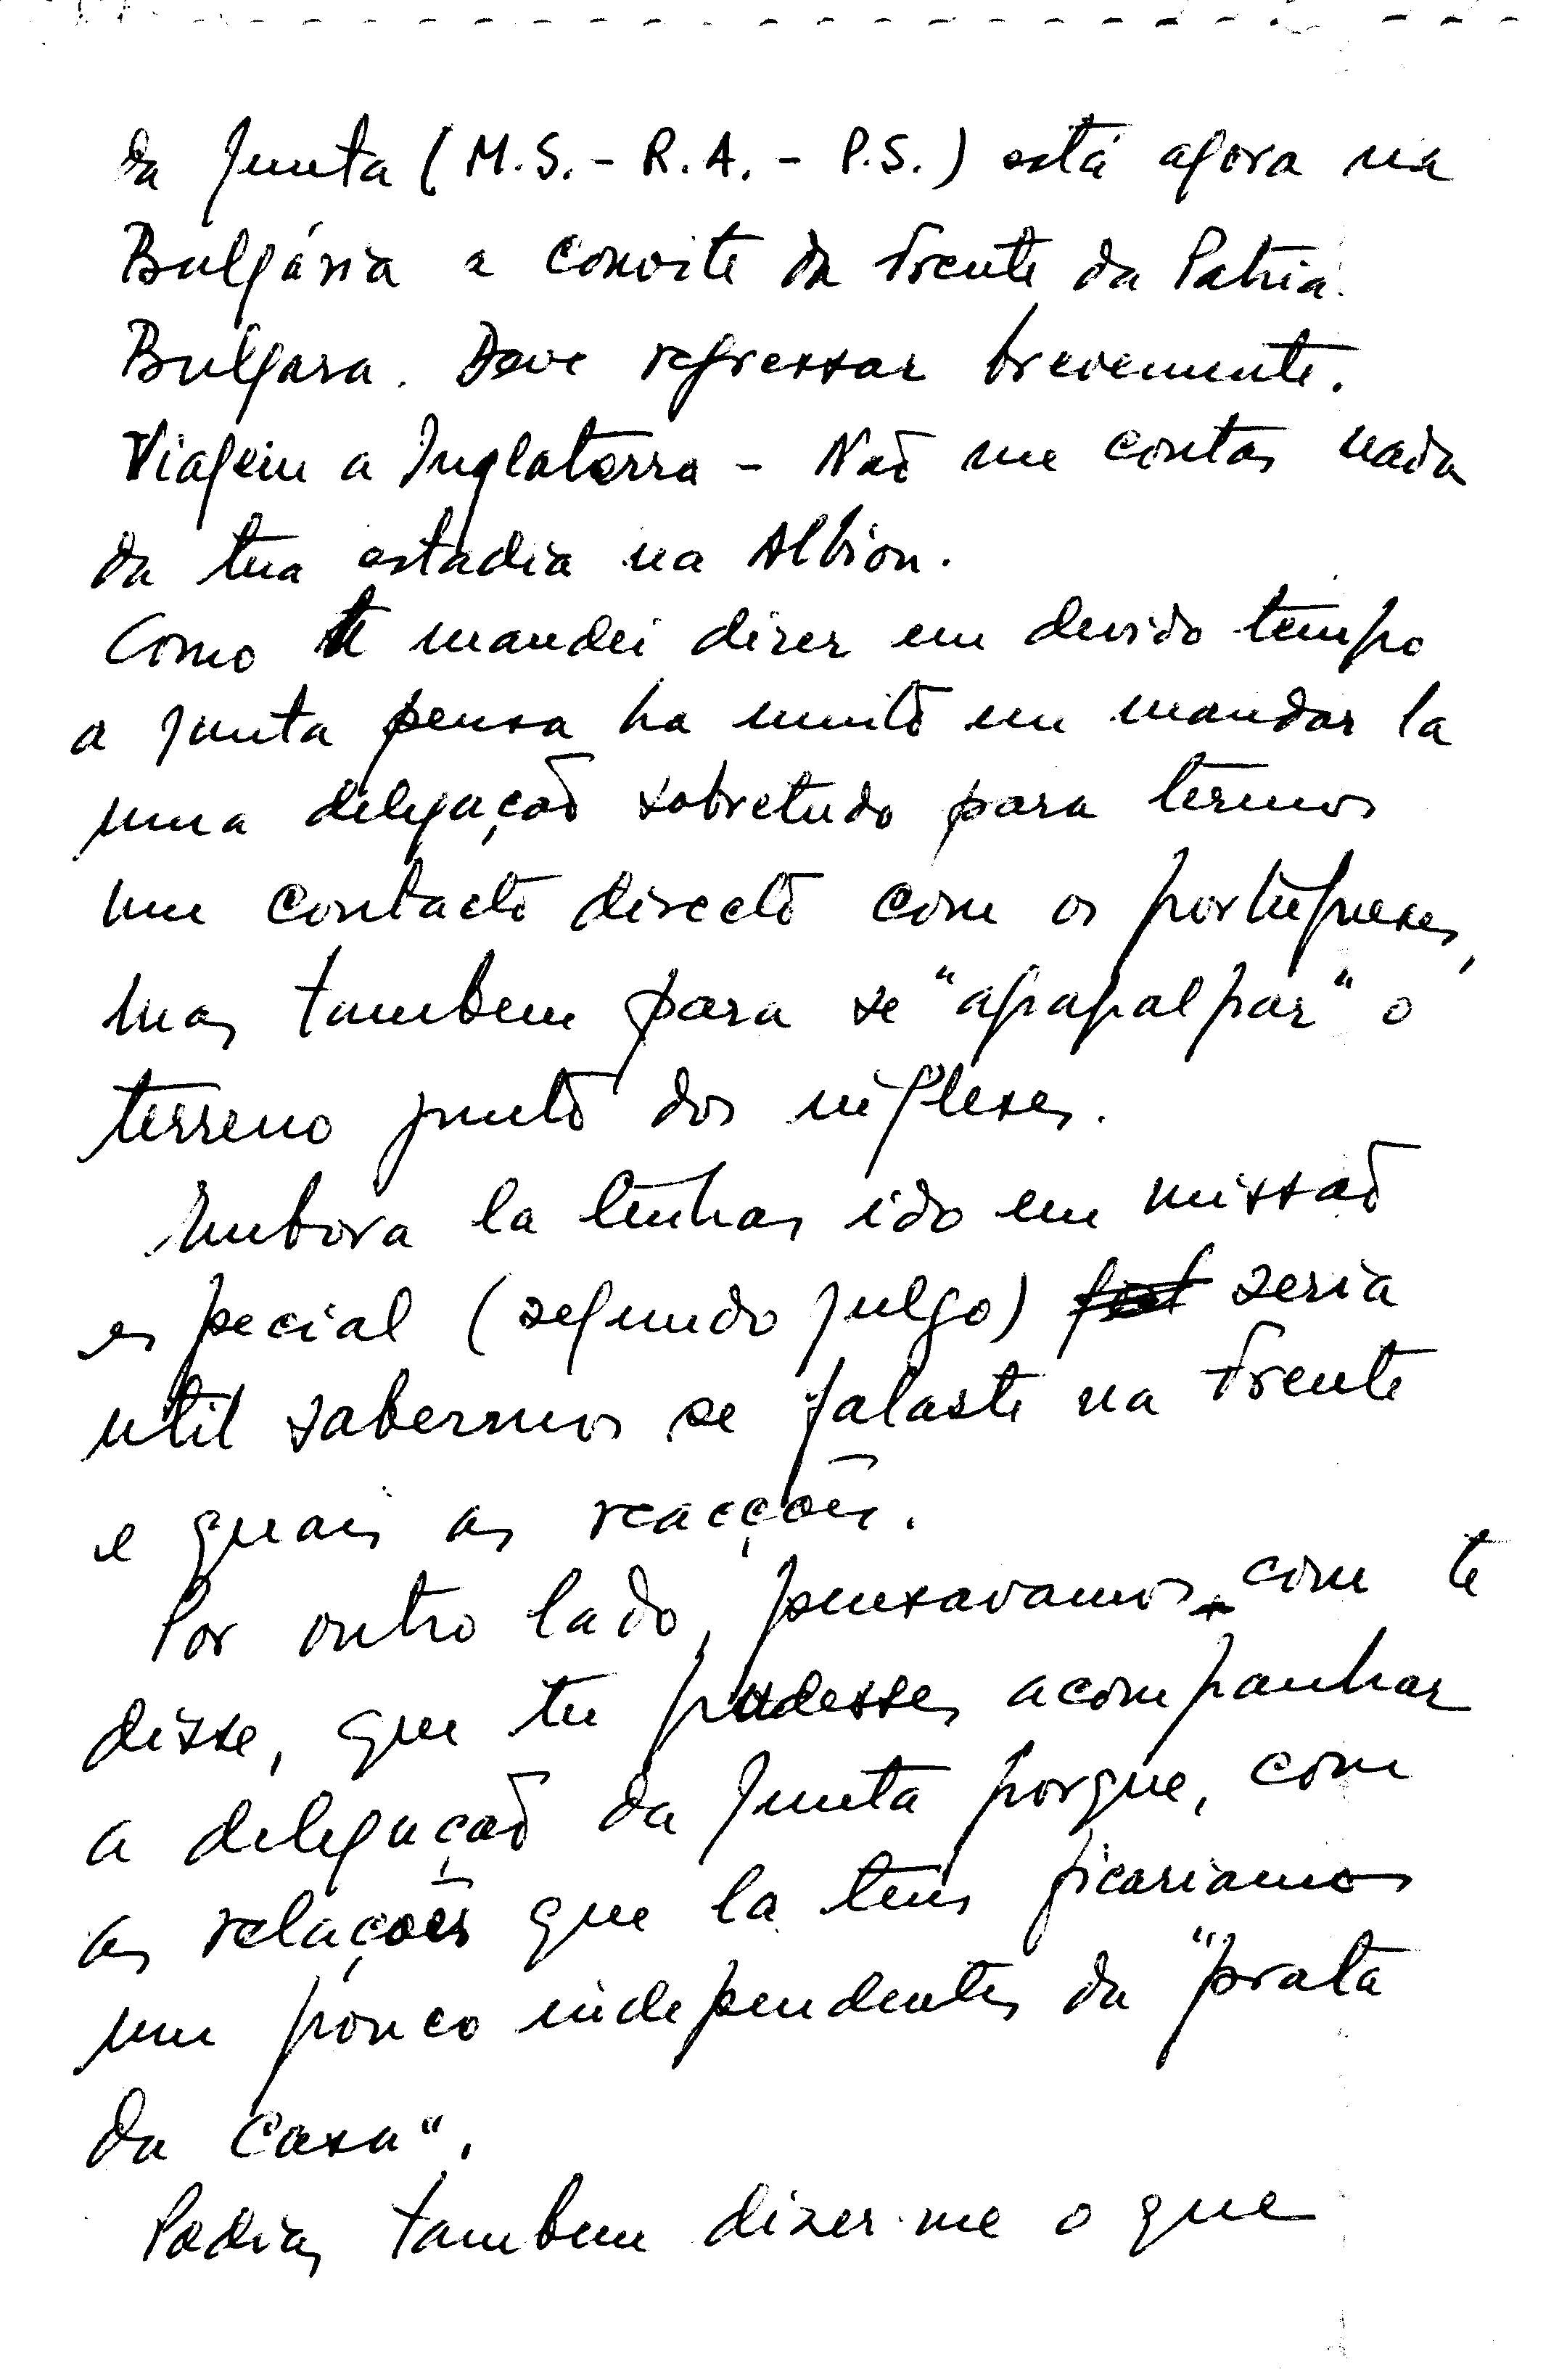 da Junta (M.S. - R.A. - P.S.) está agora na
Bulgária a convite da Frente da Patria
Bulgara. Deve regressar brevemente.
Viagem a Inglaterra - Não me contas nada
da tua estadia na Albion.
Como te mandei dizer em devido tempo
a Junta pensa ha muito em mandar la
uma delegação sobretudo para termos
um contacto directo com os portugueses,
mas tambem para se "apapalpar" o
terreno junto dos ingleses.
Embora la tenhas ido em missão
especial (segundo julgo) seria
util sabermos se falaste na Frente
e quais as reacções.
Por outro lado, pensavamos, com te
disse, que tu pudesses acompanhar
a delegação da Junta porque, com
as relações que la tens ficariamos
um pouco independentes da "prata
da casa".
Podias tambem dizer-me o que